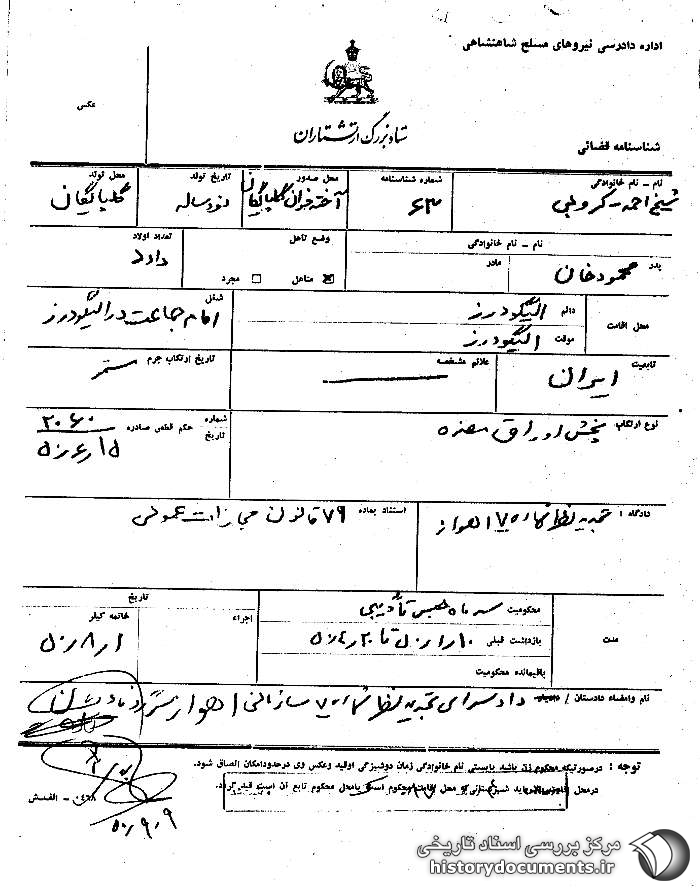 اداره دادرسی نیروهای مسلح شاهنشاهی
ستاد بزرگ ارتشتاران
عکس
شناسنامه قضائی
نام - نام خانوادگی
شیخ احمد - کروبی
شماره شناسنامه
۶۳
محل صدور
آخته خوان گلپایگان
تاریخ تولد
نود ساله
محل تولد
گلپایگان
نام - نام خانوادگی
پدر
محمود خان
مادر
وضع تاهل
متاهل
مجرد
تعداد اولاد
دارد
محل اقامت
دائم
الیگودرز
موقت
الیگودرز
شغل
امام جماعت در الیگودرز
تابعیت
ایران
علائم مشخصه
تاریخ ارتکاب جرم
نوع ارتکاب
پخش اوراق مضره
شماره
حکم قطعی صادره
تاریخ
۲۰۶۰
۱۵ر۶ر۵۰
دادگاه :
تجدید نظر شماره ۷ اهواز
استناد بماده
۷۹ قانون مجازات عمومی
مدت
محکومیت
سه ماه حبس تأدیبی
بازداشت قبلی
باقیمانده محکومیت
تاریخ
اجراء
خاتمه کیفر
۱ر۸ر۵۰
نام وامضاء دادستان /
دادسرای تجدید نظر شماره ۷ سازمانی اهواز
توجه : درصورتیکه محکوم زن باشد بایستی نام خانوادگی زمان دوشیزگی اوقید وعکس وی درحدودامکان الصاق شود.
درمحل
محکوم تابع آن است قید گردد.
۰۴۶۸ - الفش
۵۰ر۹ر۹
مرکز بررسی اسناد تاریخی
historydocuments.ir